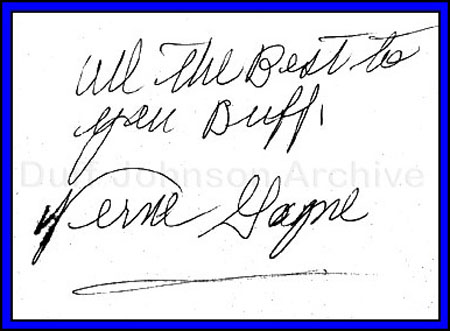 All The Best to
you Duff,
Duff Johnson Archive
Verne Gagne